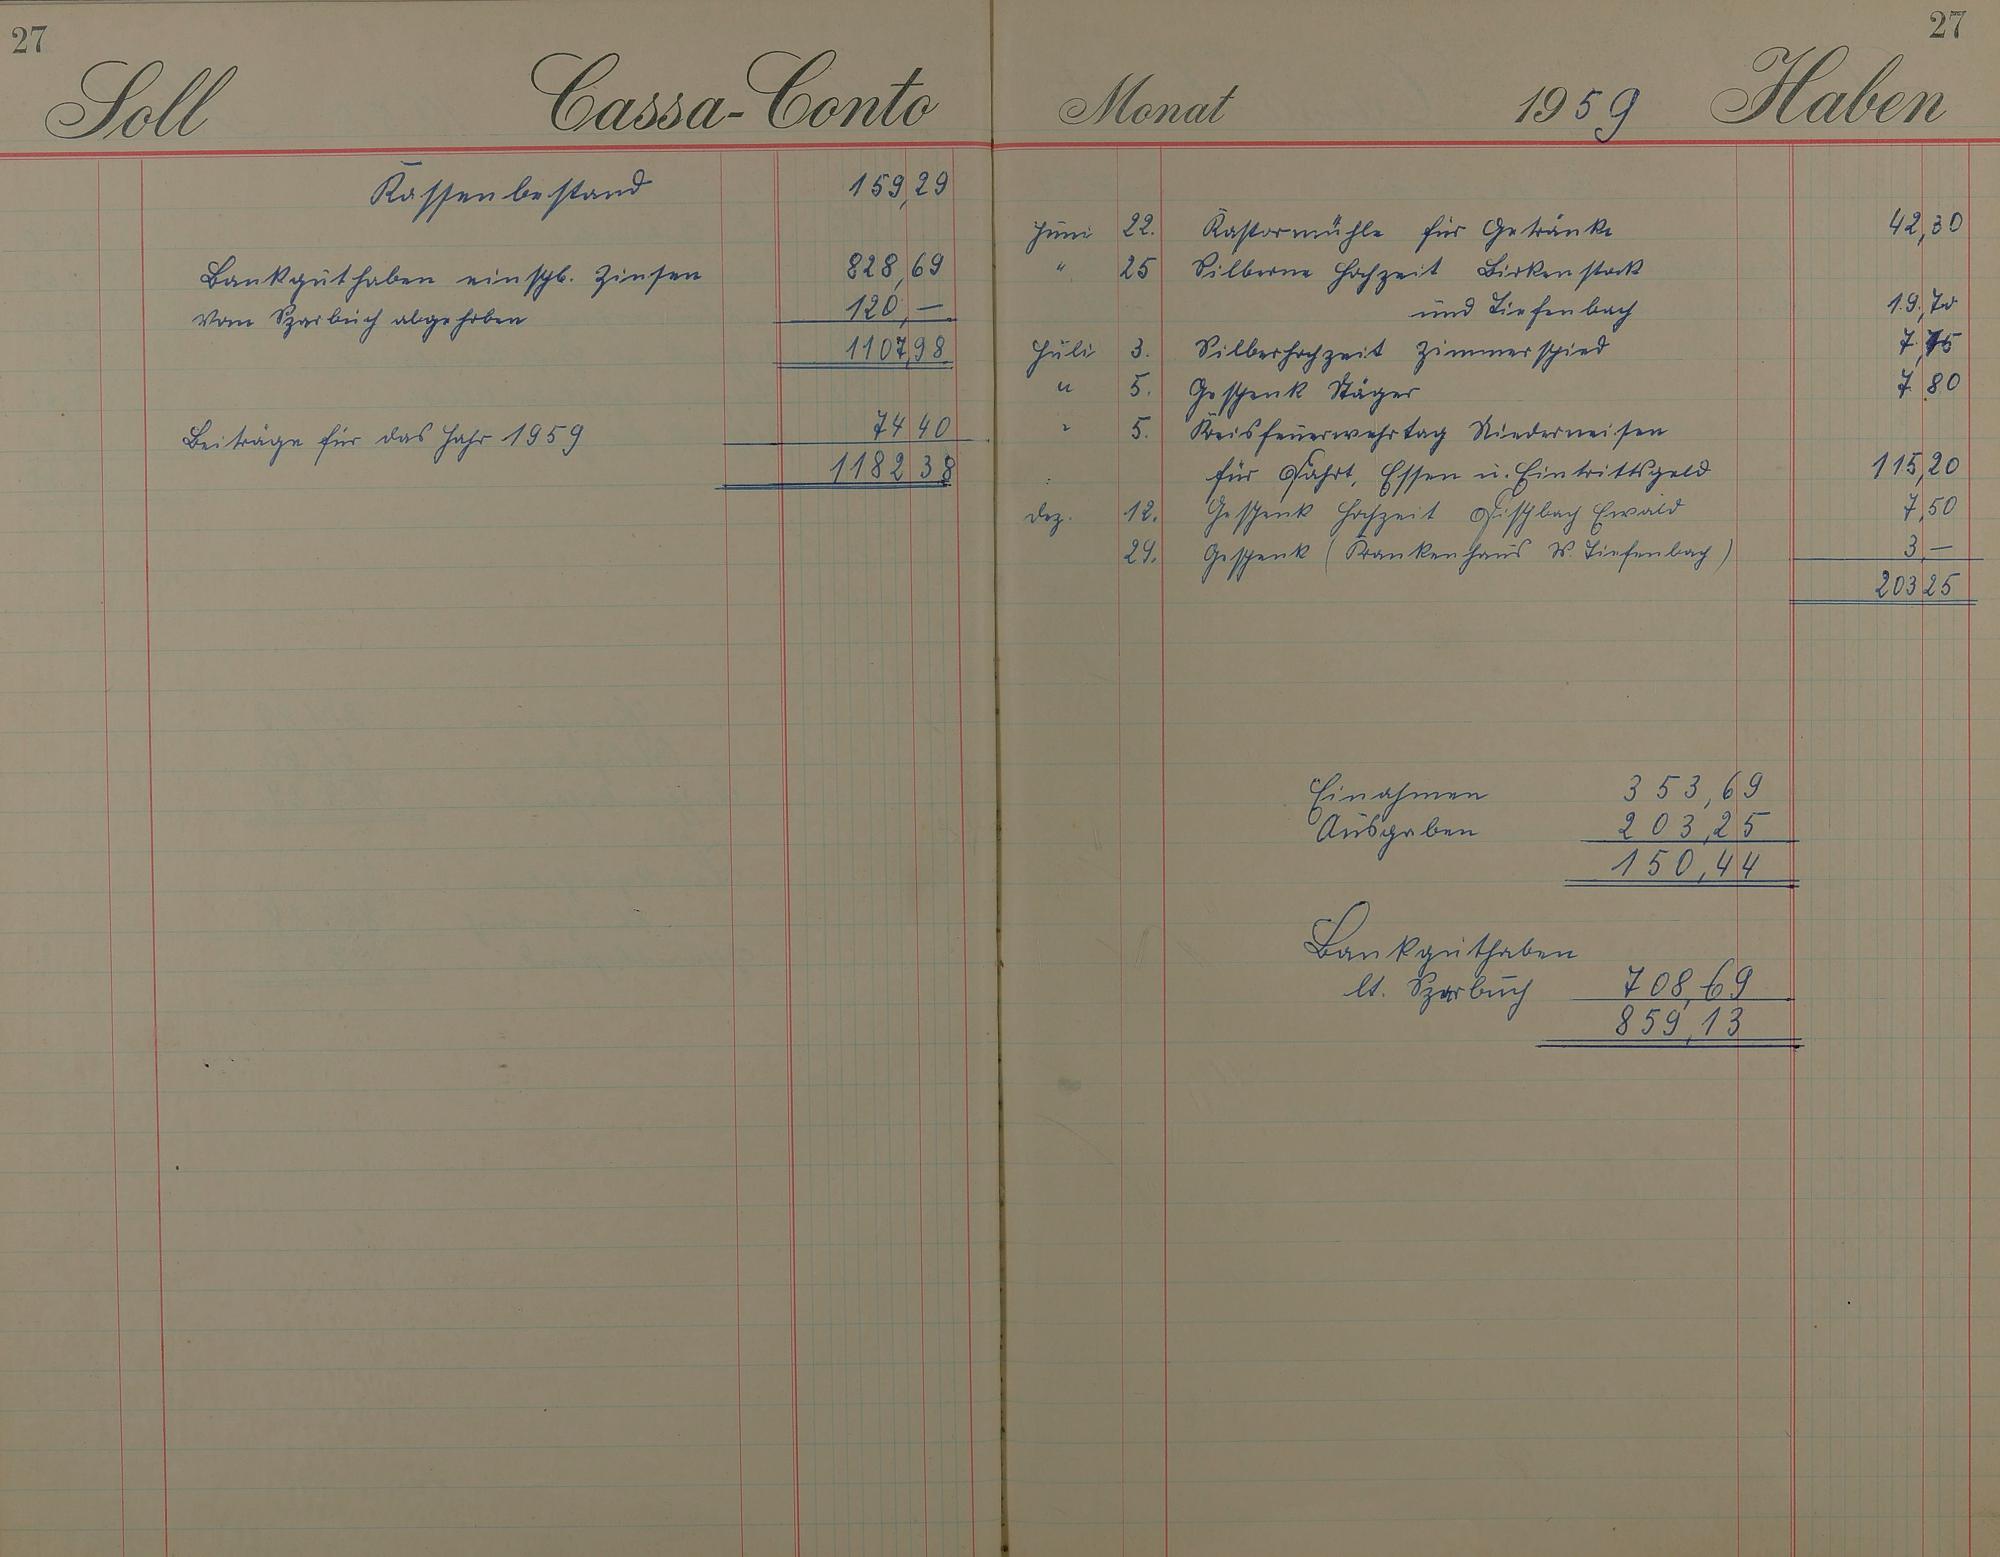 27
Soll Cassa-Conto
Kassenbestand 159,29
Bankguthaben einschl. Zinsen 828,69
Vom Sparbuch abgehoben 120,—
1107,98
Beiträge für das Jahr 1959 74 40
1182 38
27
Monat 1959 Haben
Juni 22. Kastormühle für Getränke 42,30
" 25 Silberne Hochzeit Birkenstock
und Tiefenbach 19,70
Juli 3. Silberhochzeit Zimmerschied 7,75
" 5. Geschenk Stäger 7 80
" 5. Kreisfeuerwehrtag Niederneisen
für Fahrt, Essen u. Eintrittsgeld 115,20
Dez. 12. Geschenk Hochzeit Fischbach Ewald 7,50
29. Geschenk (Krankenhaus W. Tiefenbach) 3,—
203 25
Einahmen 353,69
Ausgaben 203,25
150,44
Bankguthaben
lt. Sparbuch 708,69
859,13